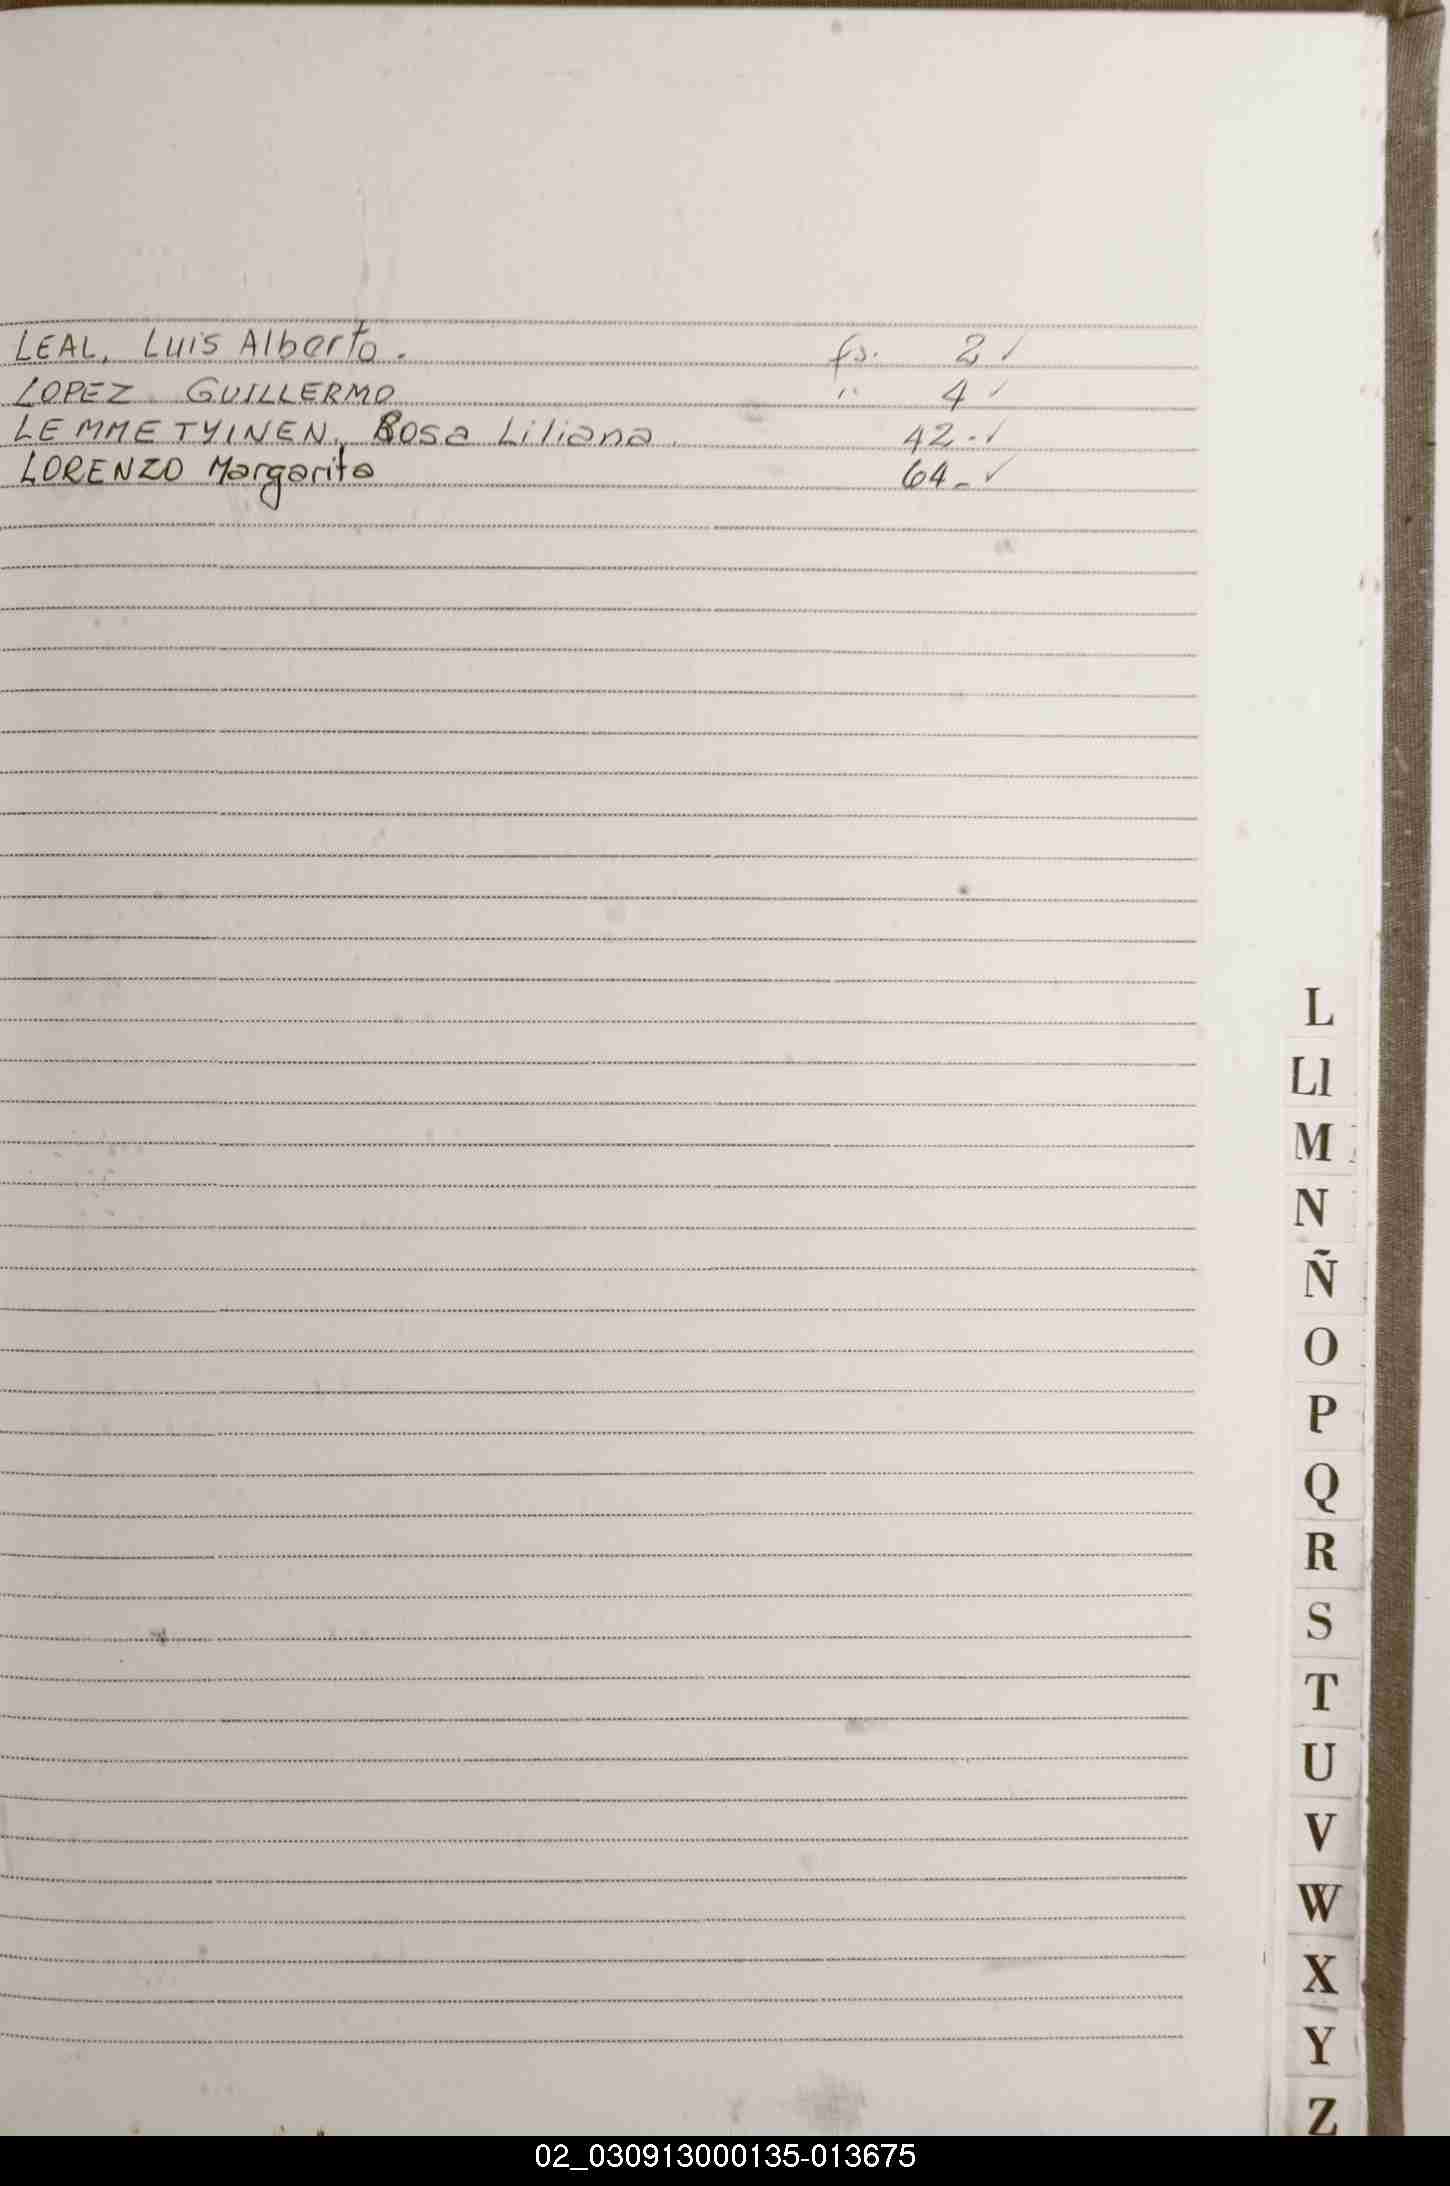 LEAL, Luis Alberto. fs. 2 ✓
LOPEZ GUILLERMO " 4 ✓
LEMMETYINEN, Rosa Liliana. 42.- ✓
LORENZO Margarita 64.- ✓
L
Ll
M
N
Ñ
O
P
Q
R
S
T
U
V
W
X
Y
Z
02_030913000135-013675